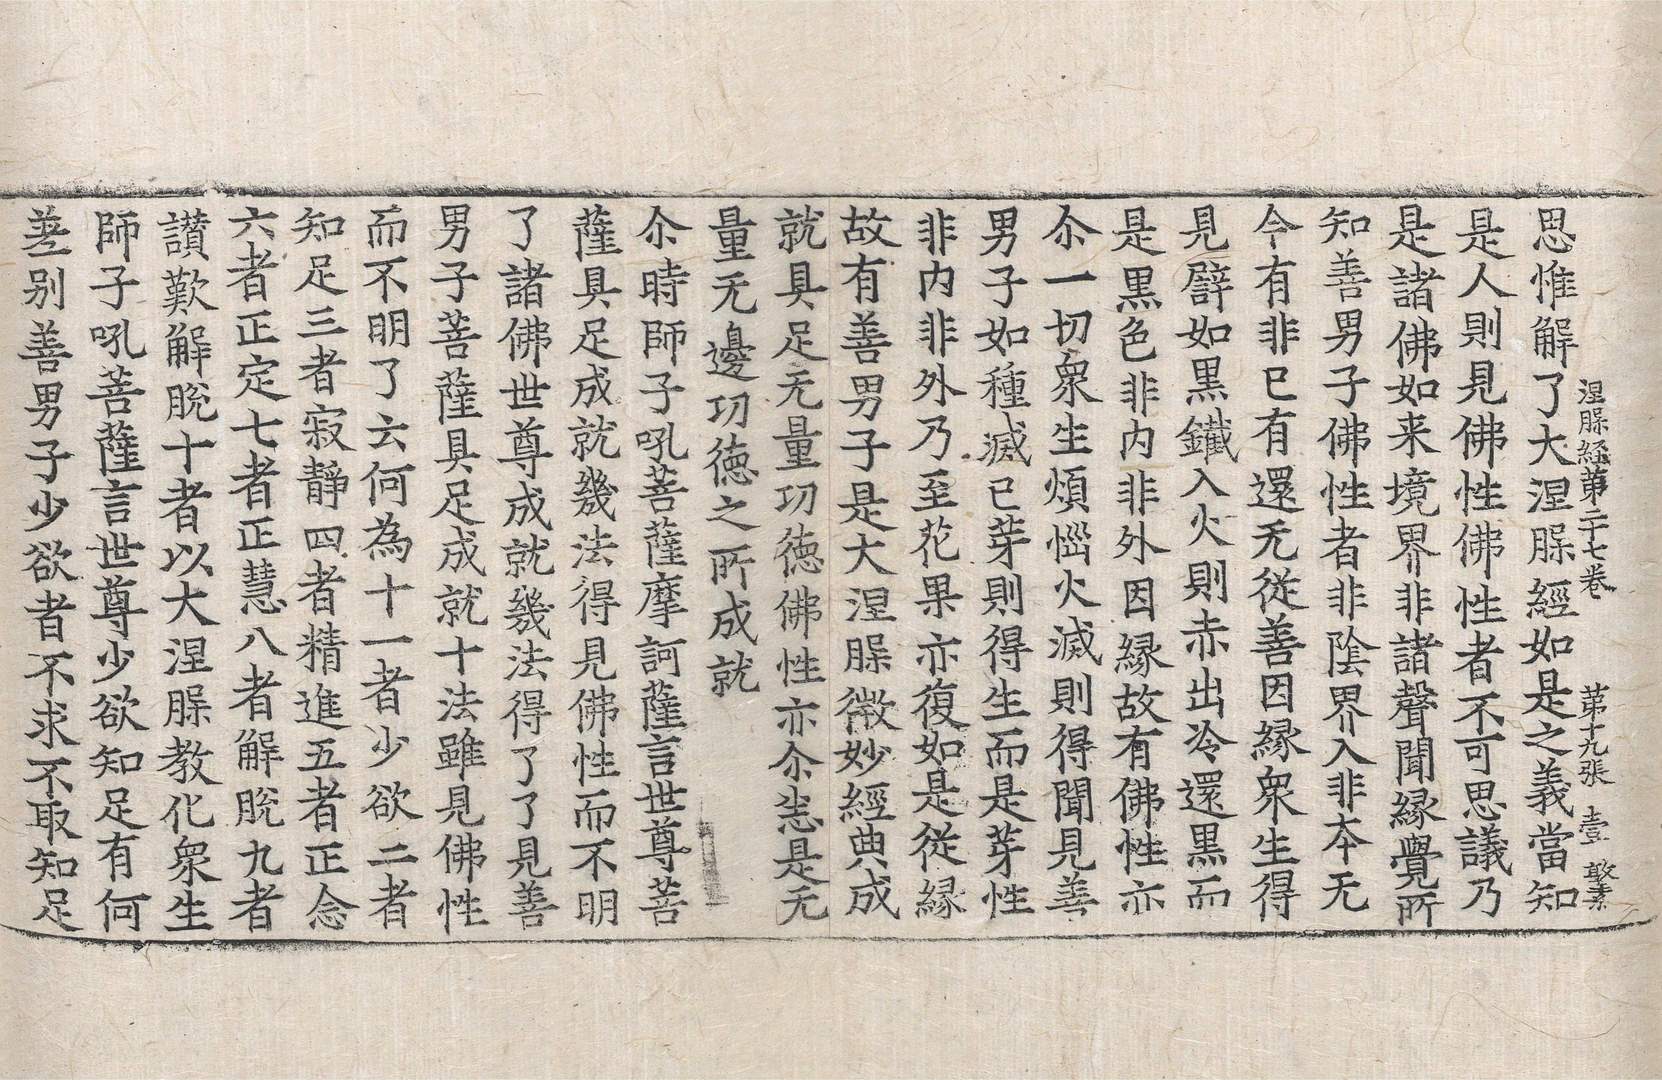 涅槃経第二十七巻 第十九張 壹 敢素
思惟解了大涅槃經如是之義當知
是人則見佛性佛性者不可思議乃
是諸佛如来境界非諸聲聞縁覺所
知善男子佛性者非陰界入非本无
今有非已有還无従善因縁衆生得
見譬如黒鐵入火則赤出冷還黒而
是黒色非内非外因縁故有佛性亦
尒一切衆生煩惱火滅則得聞見善
男子如種滅已芽則得生而是芽性
非内非外乃至花果亦復如是従縁
故有善男子是大涅槃微妙經典成
就具足无量功徳佛性亦尒悉是无
量无邊功徳之所成就
尒時師子吼菩薩摩訶薩言世尊菩
薩具足成就幾法得見佛性而不明
了諸佛世尊成就幾法得了了見善
男子菩薩具足成就十法雖見佛性
而不明了云何為十一者少欲二者
知足三者寂靜四者精進五者正念
六者正定七者正慧八者解脫九者
讃歎解脫十者以大涅槃教化衆生
師子吼菩薩言世尊少欲知足有何
差别善男子少欲者不求不取知足